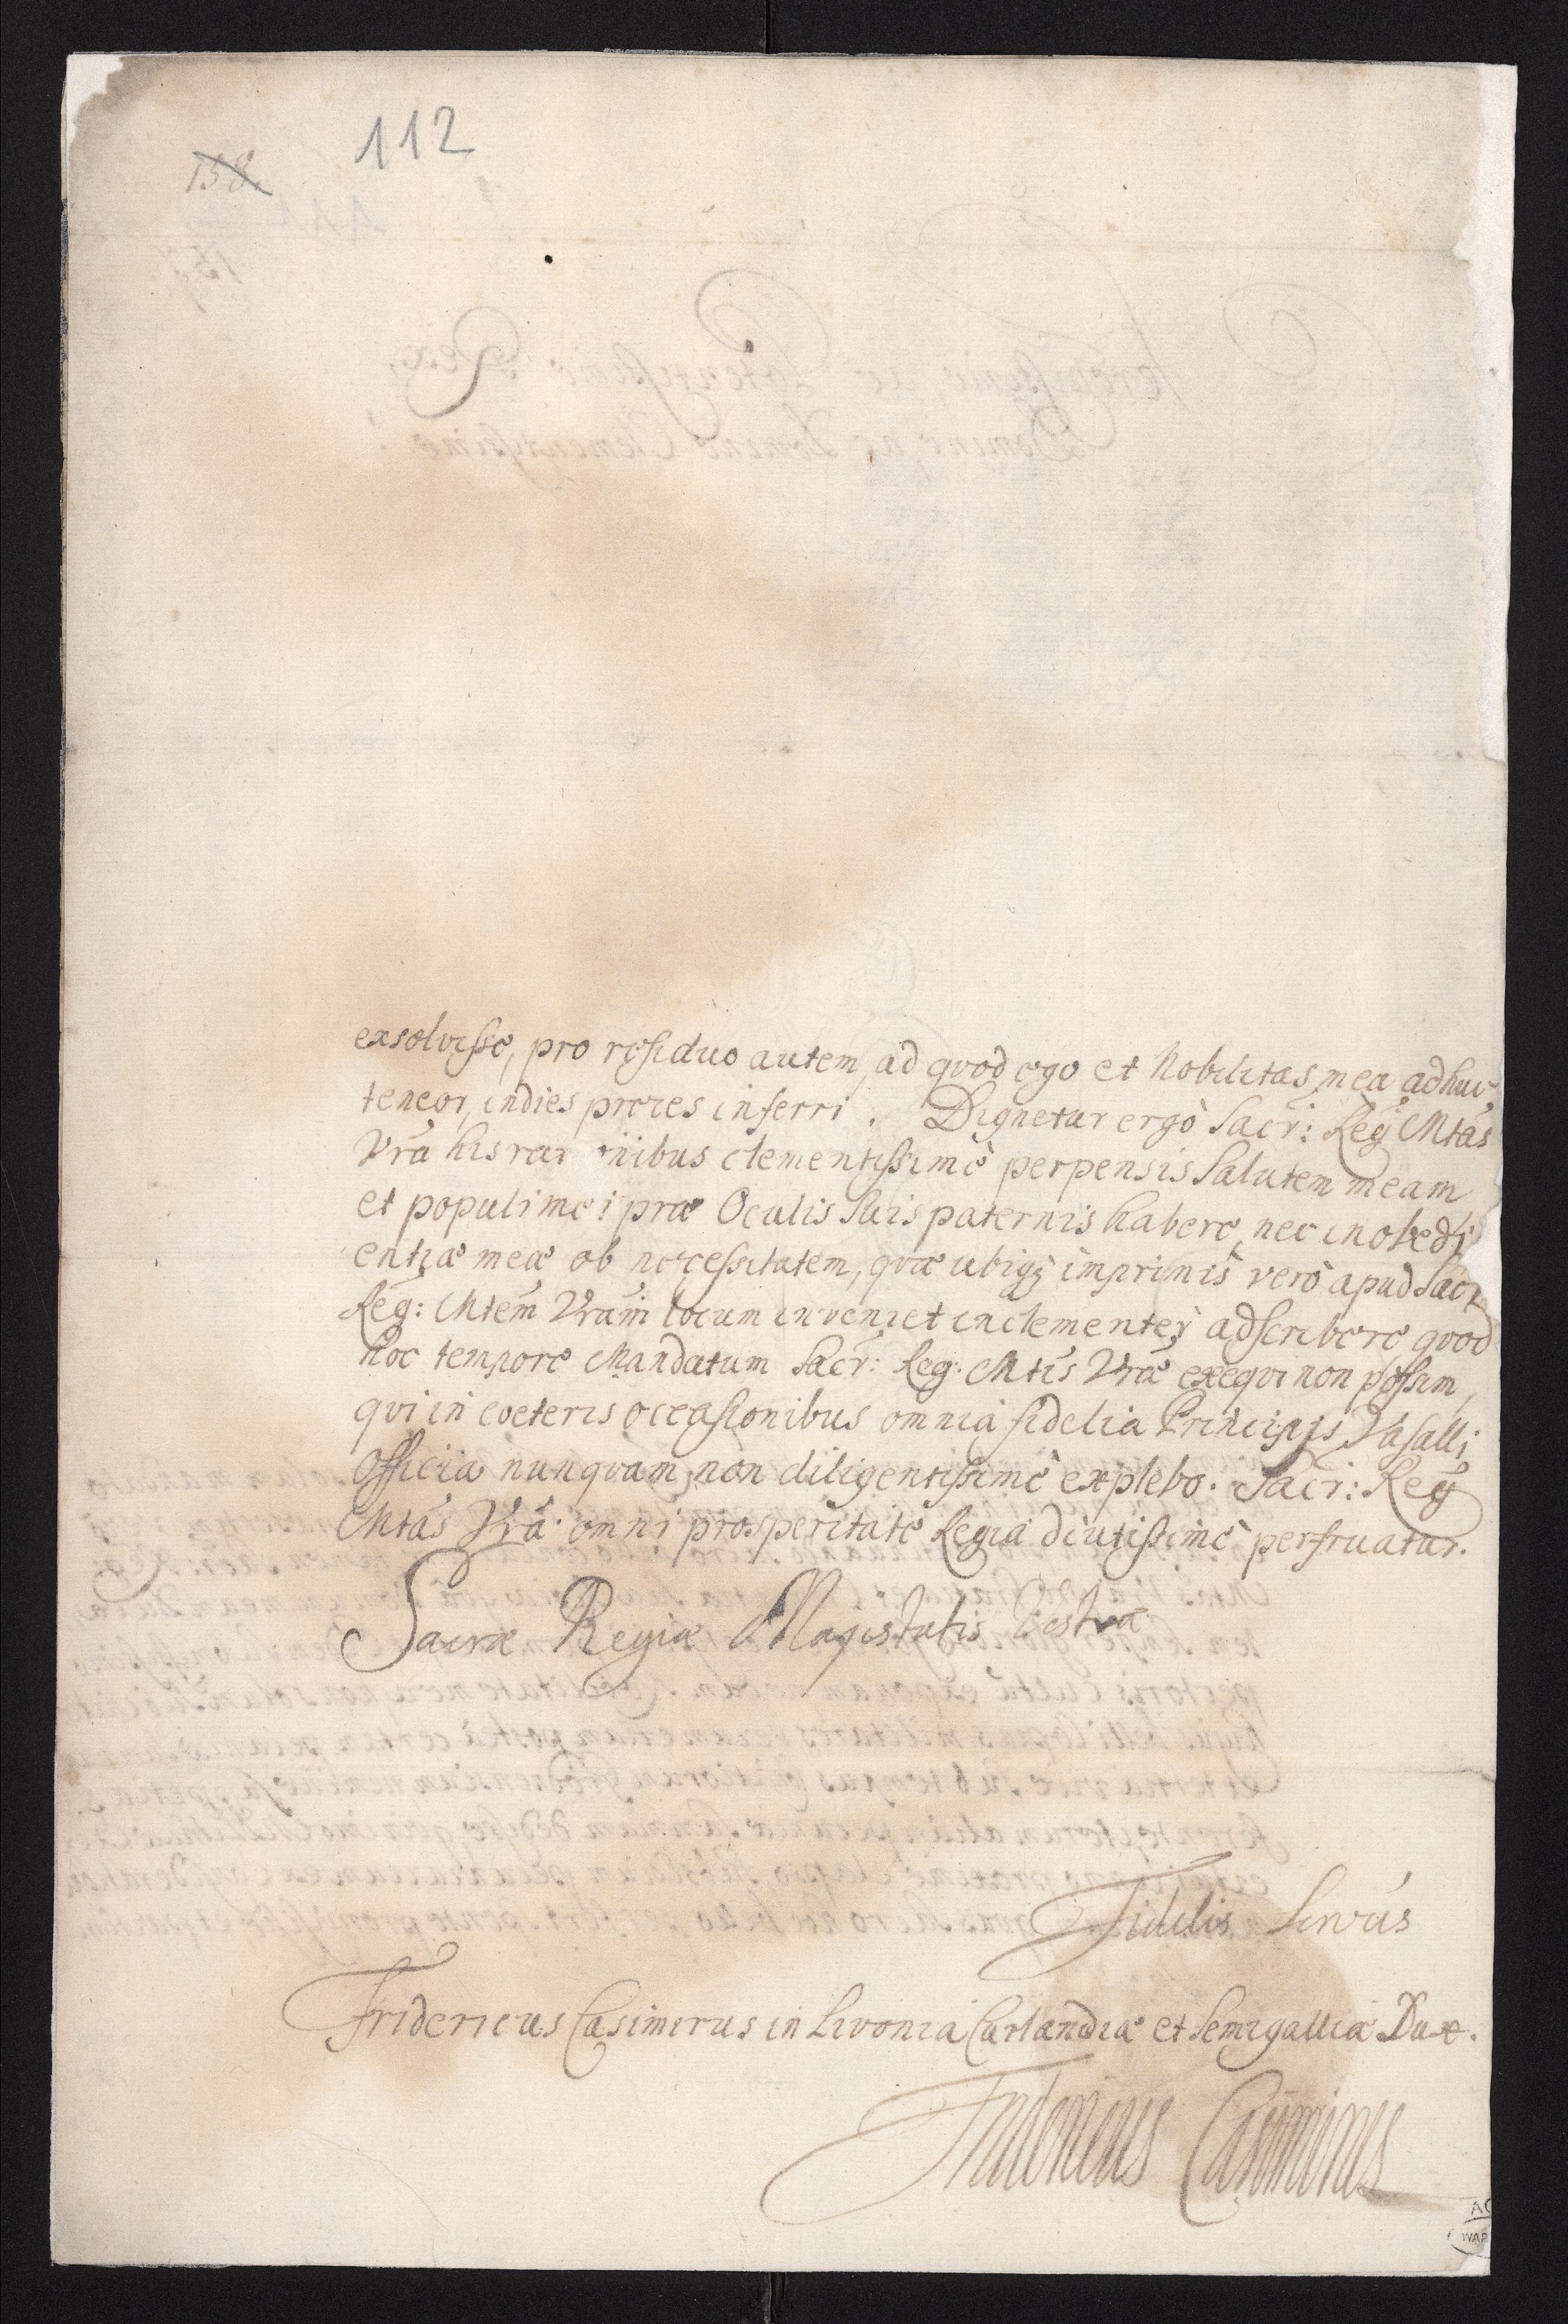 112
158.
exsolvisse, pro residuo autem, ad qvod ego et Nobilitas mea adhuc
teneor, indies preces inferri. Dignetur ergò Sacr: Reg Mtas
Vra his rationibus clementissimè perpensis Salutem meam
et populi mei præ Oculis Suis paternis habere, nec inobedi
entiæ meæ ob necessitatem, qvæ ubiq; imprimis verò apud Sacr
Reg: Mtem Vram locum inveniet inclementer adscribere qvod
hoc tempore Mandatum Sacr: Reg: Mtis Vræ exeqvi non possim,
qvi in coeteris occasionibus omnia fidelia Principis Vasalli
Officia nunqvam non diligentissimè explebo. Sacr: Reg
Mtas Vra omni prosperitate Regia diutissimè perfruatur.
Sacræ Regiæ Magestatis Vestræ
Fidelis Servus
Fridericus Casimirus in Livonia Curlandiæ et Semigalliæ Dux.
Fridericus Casimirus